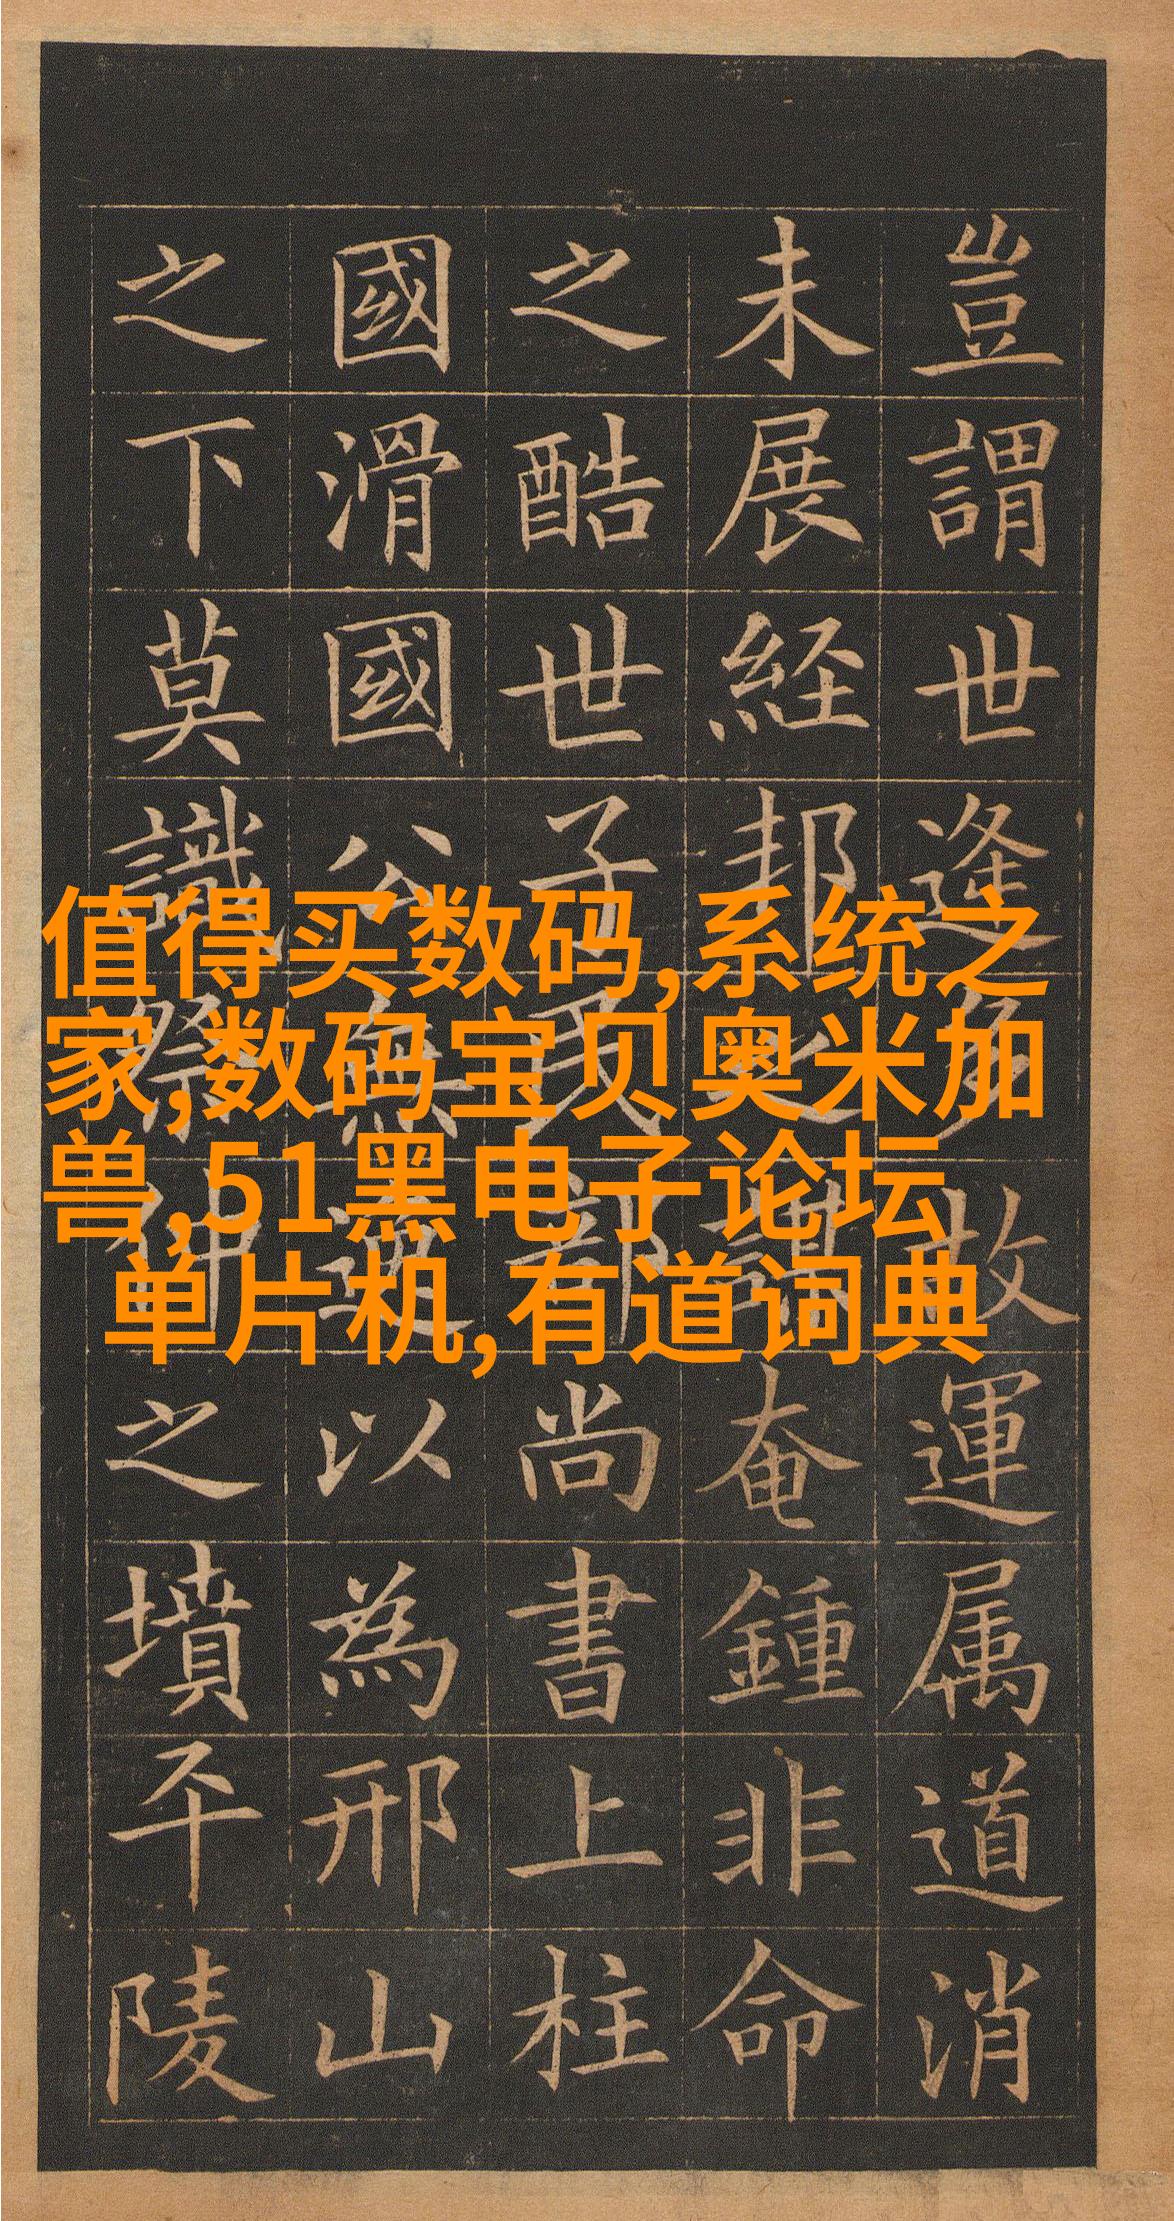 豈謂世逢多故運属道消
未展經邦之謀奄鍾非命
之酷世子民部尚書上柱
國滑國公無逸以為邢山
之下莫識祭仲之墳平陵
值得买数码,系统之
家,数码宝贝奥米加
兽,51黑电子论坛
单片机,有道词典